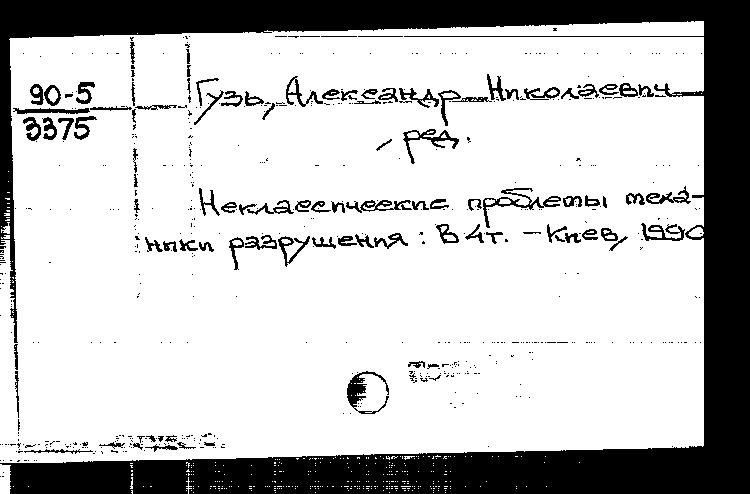 90-5
3375
Гузь, Александр Николаевич
, ред.
Неклассические проблемы меха-
ники разрушения : В 4т. – Киев, 1990